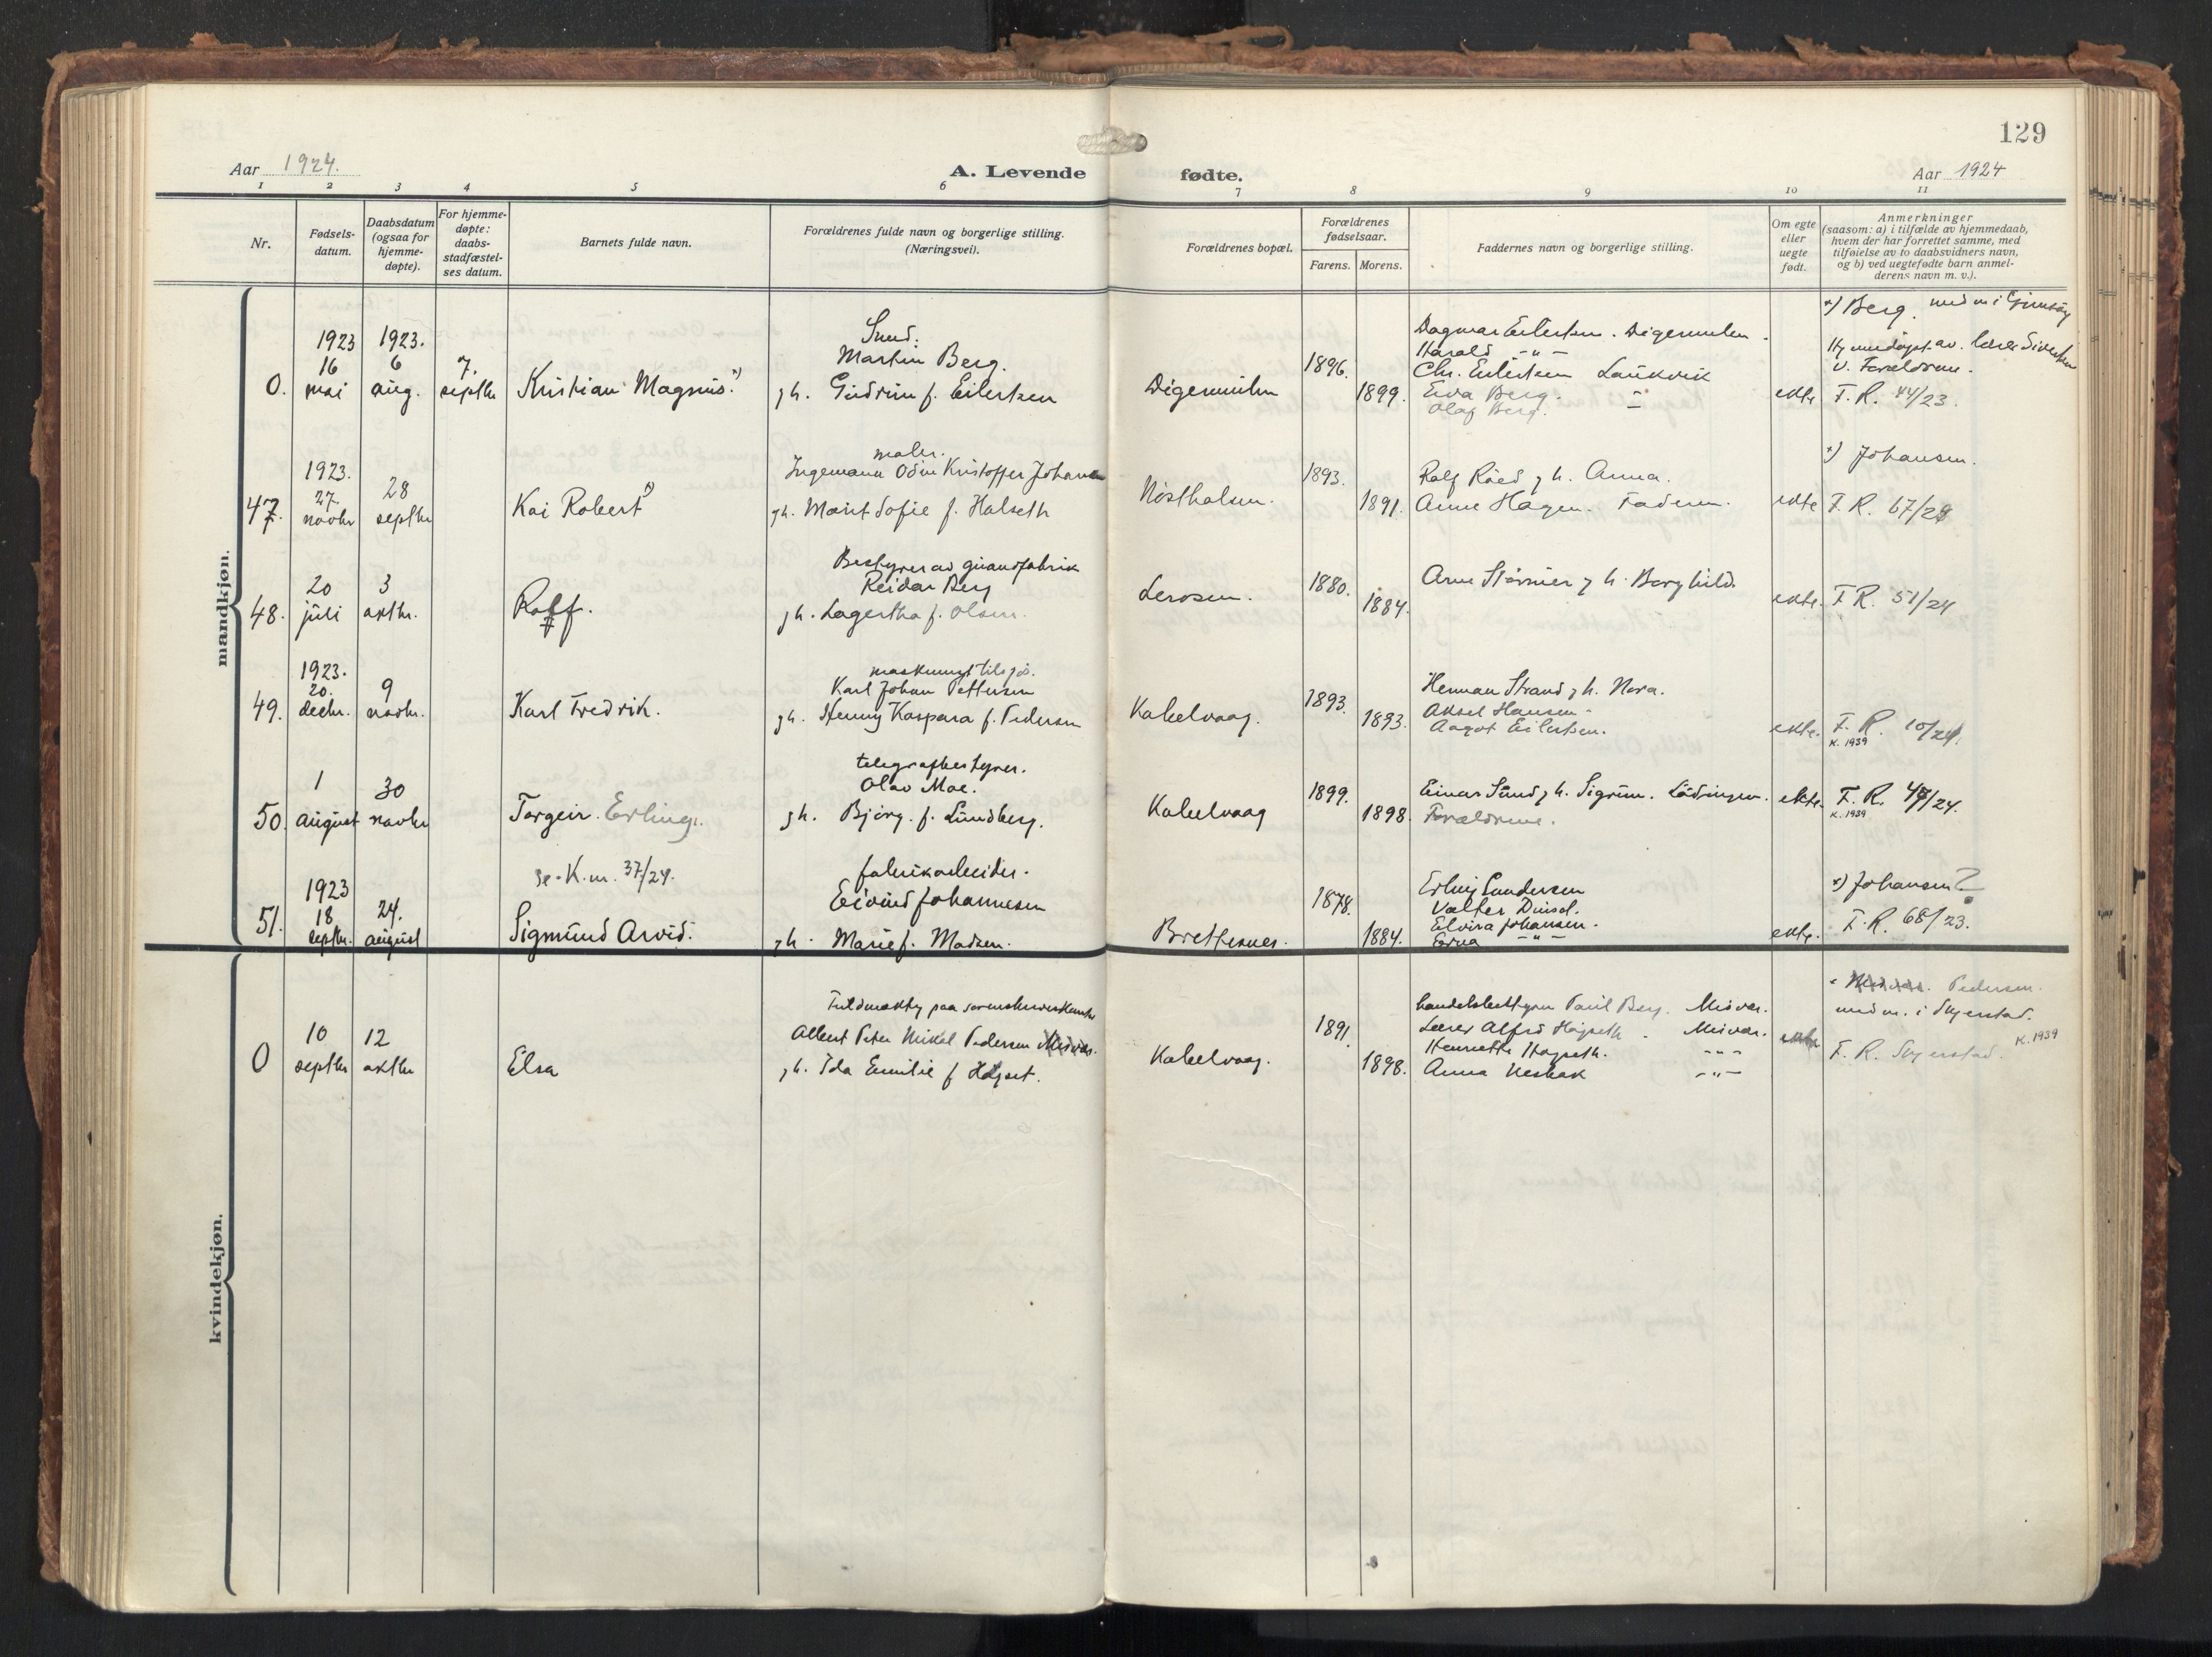 129
Aar 1924. A. Levende fødte. Aar 1924
1 2 3 4 5 6 7 8 9 10 11
Nr.
Fødsels-
datum.
Daabsdatum
(ogsaa for
hjemme-
døpte).
For hjemme-
døpte:
daabs-
stadfæstel-
ses datum.
Barnets fulde navn.
Forældrenes fulde navn og borgerlige stilling.
(Næringsvei).
Forældrenes bopæl.
Forældrenes
fødselsaar.
Farens. Morens.
Faddernes navn og borgerlige stilling.
Om egte
eller
uegte
født.
Anmerkninger
(saasom: a) i tilfælde av hjemmedaab,
hvem der har forrettet samme, med
tilføielse av to daabsvidners navn,
og b) ved uegtefødte barn anmel-
derens navn m. v.).
mandkjøn.
0.
1923
16
mai
1923.
6
aug.
7.
septbr
Kristian Magnus. x)
Martin Berg.
g h. Gudrun f. Eilertsen
Digermulen
1896.
1899.
Dagmar Eilertsen. Digermulen.
Harald -"-
Chr. Eilertsen Laukvik
Eva Berg.
Olaf Berg.
ekte
x) Berg. ind m i Gimsøy
Hj medøpt av. lærer Sivertsen
v. Forældrene.
F. R. 44/23.
47.
1923.
27.
novbr
28
septbr
Kai Robert x)
maler.
Ingemann Odin Kristoffer Johansen
gh. Marit Sofie f. Halseth
Nøstholmen.
1893.
1891.
Rolf Røed g h. Anna.
Arne Hagen. Faderen.
ekte
x) Johansen.
F. R. 67/23
48.
20
juli
3
oktbr.
Rolf.
Bestyrer av guanofabrik
Reidar Berg
g h. Lagertha f. Olsen.
Lerosen.
1880.
1884.
Arne Størmer g h. Borghild.
ekte.
F R. 51/24
49.
1923.
20.
decbr.
9
novbr.
Karl Fredrik.
Karl Johan Pettersen
g h. Henny Kaspara f. Pedersen
Kabelvaag.
1893.
1893.
Herman Strand g h. Nora.
Aksel Hansen
Aagot Eilertsen.
ekte.
F. R. 10/24.
K. 1939
50.
1
august
30
novbr
Torgeir. Erling.
telegrafbestyrer.
Olav Moe.
g h. Bjørg. f. Lundberg.
Kabelvaag
1899.
1898.
Einar Sund g h. Sigrun. Lødingen.
Forældrene.
ekte.
F. R. 48/24.
K. 1939
51.
1923
18
septbr.
24.
august
se. K. m. 37/24.
Sigmund Arvid.
fabrikarbeider.
Eivind Johannesen
g h. Marie f. Madsen.
Brettesnes.
1878.
1884.
Erling Gundersen
Valter
Elvira Johansen.
Erna -"-
ekte.
x) Johansen?
F. R. 68/23.
kvindekjøn.
0
10
septbr
12
oktbr
Elsa
Fuldmæktig paa sorenskriverkontor
Albert Peter Mikal Pedersen
g h. Ida Emilie f Høgset.
Kabelvaag.
1891.
1898.
handelsbestyrer Paul Berg. Misvær.
Lærer Alfred Høgseth. Misvær.
Henriette Høgseth. -"-
Anna -"-
ekte
Pedersen.
ind m. i Skjerstad.
F. R. Skjerstad. K. 1939